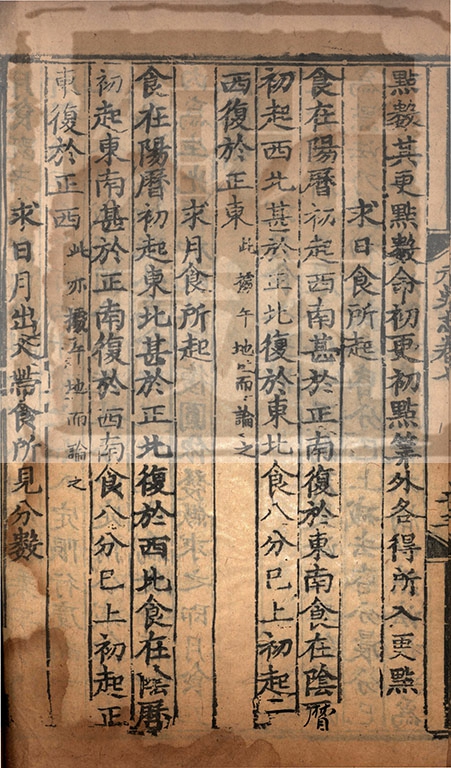 點數其更點數命初更初點筭外各得所入更點
求日食所起
食在陽曆初起西南甚於正南復於東南食在陰曆
初起西北甚於正北復於東北食八分已上初起二
西復於正東此據午地而論之
求月食所起
食在陽曆初起東北甚於正北復於西北食在陰曆
初起東南甚於正南復於西南食八分已上初起正
東復於正西此亦據午地而論之
求日月出入帶食所見分數